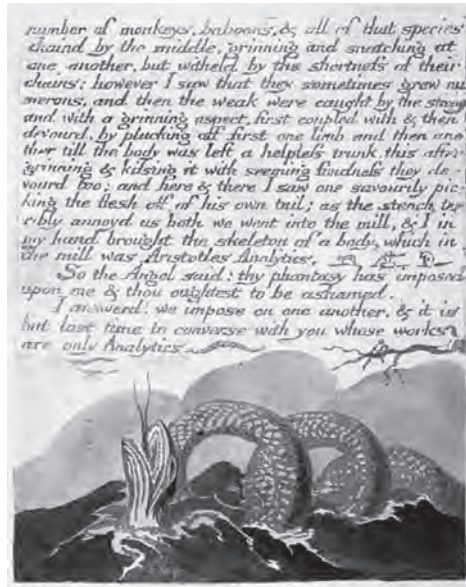 number of monkeys, baboons, & all of that species
chaind by the middle, grinning and snatching at
one another, but witheld by the shortness of their
chains: however I saw that they sometimes grew nu
merous, and then the weak were caught by the strong
and with a grinning aspect, first coupled with & then
devourd, by plucking off first one limb and then ano
ther till the body was left a helpless trunk. this after
grinning & kissing it with seeming fondness they de
vourd too; and here & there I saw one savourily pic
king the flesh off of his own tail; as the stench ter
ribly annoyd us both we went into the mill, & I in
my hand brought the skeleton of a body, which in
the mill was Aristotles Analytics.
So the Angel said: thy phantasy has imposed
upon me & thou oughtest to be ashamed.
I answerd: we impose on one another, & it is
but lost time to converse with you whose works
are only Analytics